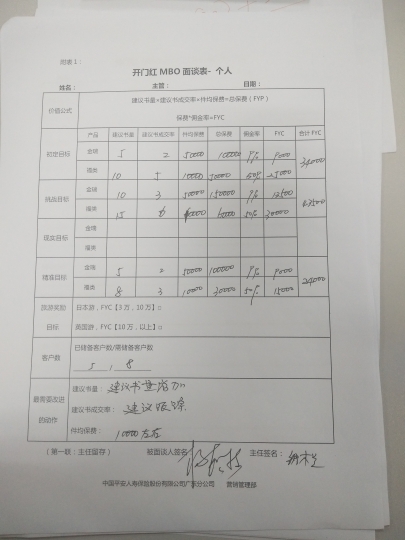 附表1：
开门红MBO面谈表- 个人
姓名： 主管： 日期：
价值公式 建议书量*建议书成交率*件均保费=总保费（FYP）
保费*佣金率=FYC
产品 建议书量 建议书成交率 件均保费 总保费 佣金率 FYC 合计FYC
约定目标 金瑞 5 2 50000 100000 9% 9000 34000
福类 10 5 10000 50000 50% 25000
挑战目标 金瑞 10 3 50000 150000 9% 12500 43500
福类 15 6 10000 60000 50% 30000
现实目标 金瑞
福类
精准目标 金瑞 5 2 50000 100000 9% 9000 24000
福类 8 3 10000 30000 50% 15000
旅游奖励 日本游，FYC【3万，10万】□
目标 英国游，FYC【10万，以上】□
客户数 已储备客户数/需储备客户数
5 / 8
最需要改进 建议书量：建议书量增加
的动作 建议书成交率：建议跟踪
件均保费：10000左右
（第一联：主任留存） 被面谈人签名： 主任签名：
中国平安人寿保险股份有限公司广东分公司 营销管理部